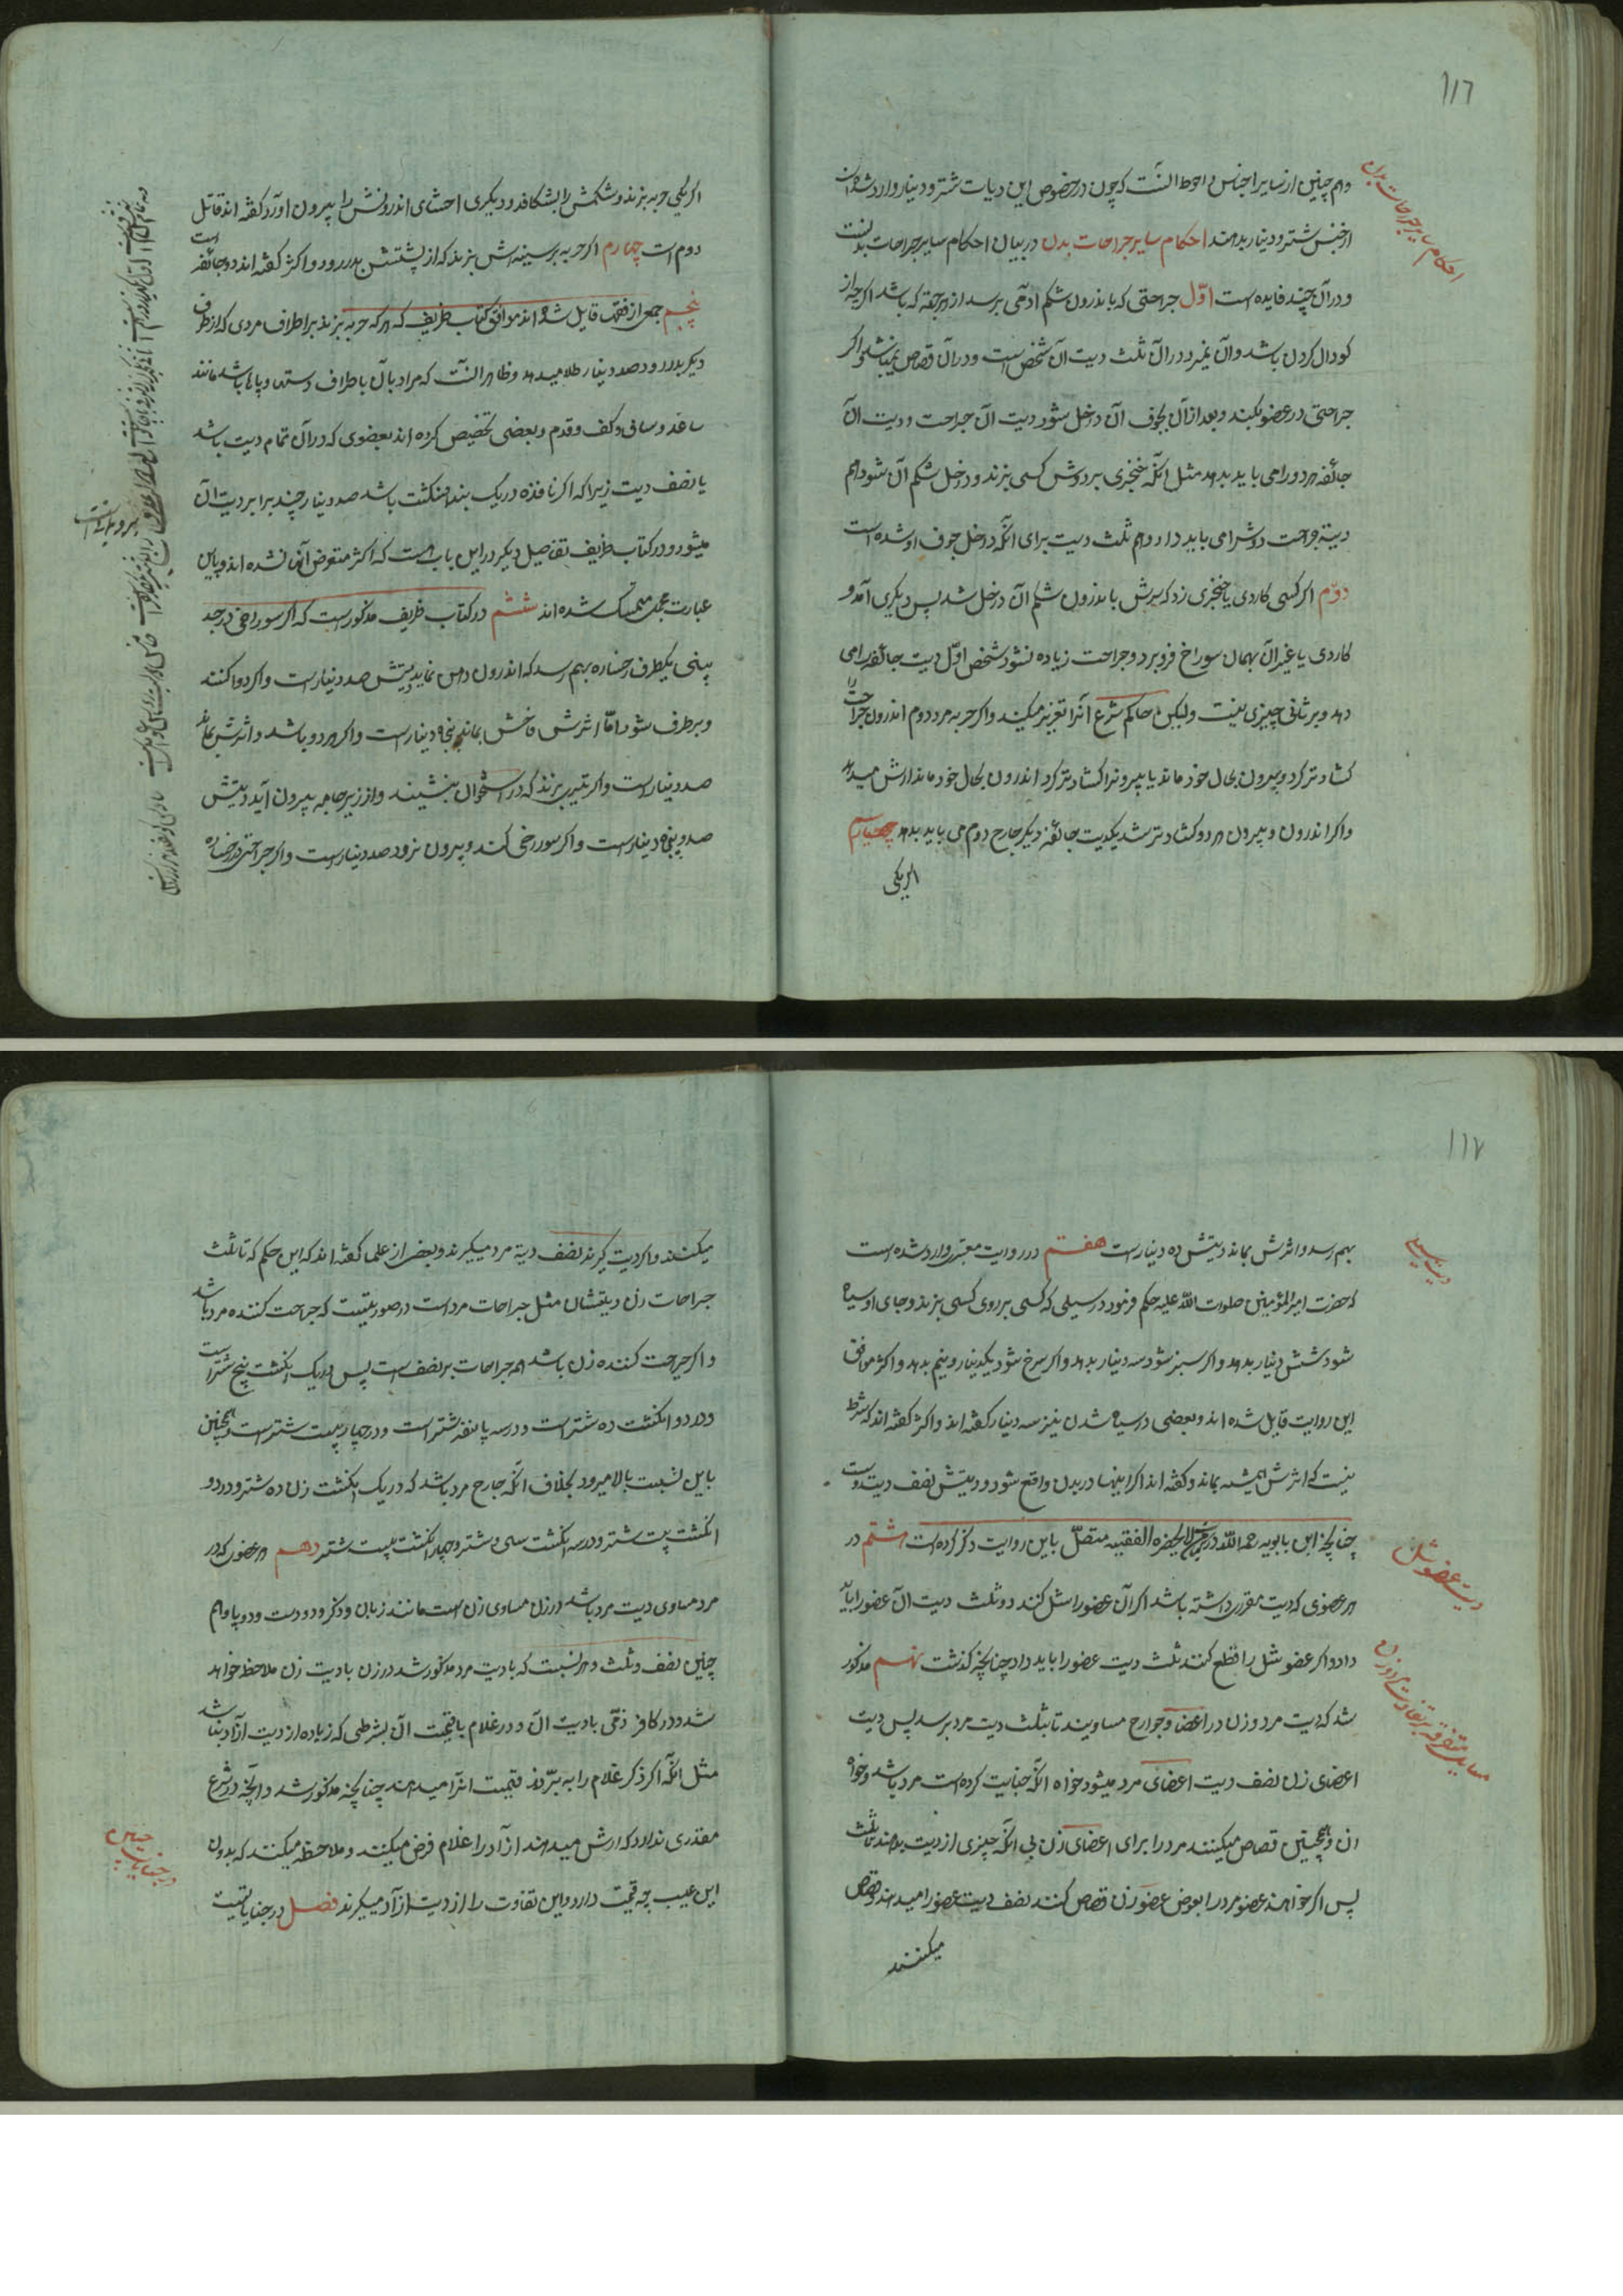 ۱۱٦
احکام سایر جراحات بدن
و هم چنین از سایر اجناس و احوط آنست که چون در خصوص این دیات شتر و دینار وارد شده است
از جنس شتر و دینار بدهند احکام سایر جراحات بدن در بیان احکام سایر جراحات بدنست
و در آن چند فایده است اوّل جراحتی که باندرون شکم ادمی برسد از هر جهة که باشد اکرچه از
کودال کردن باشد و آن نمیرد در آن ثلث دیت آن شخص است و در آن قصاص نمیباشد و اکر
جراحتی در عضو بکند و بعد از آن بجوف آن داخل شود دیت آن جراحت و دیت آن
جائفه هر دو را می باید بدهد مثل آنکه خنجری بر دوش کسی بزند و داخل شکم آن شود هم
دیة جراحت دوشرا می باید داد و هم ثلث دیت برای آنکه داخل جوف او شده است
دوّم اکر کسی کاردی یا خنجری زد که سرش باندرون شکم آن داخل شد پس دیکری آمد و
کاردی یا غیر آن بهمان سوراخ فرو برد و جراحت زیاده نشود شخص اوّل دیت جائفه را می
دهد و بر ثانی چیزی نیست و لیکن حاکم شرع آنرا تعزیر میکند و اکر حربه مرد دوم اندرون جراحت را
کشادتر کرد و بیرون بحال خود ماند یا بیرونرا کشادتر کرد اندرون بحال خود ماند ارش میدهد
و اکر اندرون و بیرون هر دو کشادتر شد یکدیت جائفه دیکر جارح دوم می باید بدهد
اکر یکی
اکر یکی حربه بزند و شکمش را بشکافد و دیکری احشای اندرونش را بیرون اورد کفته اند قاتل
دوم است چهارم اکر حربه بر سینه اش بزند که از پشتش بدر رود و اکثر کفته اند دو جائفه است
پنجم جمعی از فقها قایل شده اند موافق کتاب ظریف که هر که حربه بزند بر اطراف مردی که از طرف
دیکر بدر رود صد دینار طلا میدهد و ظاهر آنست که مراد بآن باطراف دستها و پاها باشد مانند
ساعد و ساق و کف و قدم و بعضی تخصیص کرده اند بعضوی که در آن تمام دیت باشد
یا نصف دیت زیرا که اکر نافذه در یک بند انکشت باشد صد دینار چند برابر دیت آن
میشود و در کتاب ظریف تفاصیل دیکر در این باب هست که اکثر متعرض آنها نشده اند و باین
عبارت مجمل متمسک شده اند ششم در کتاب ظریف مذکور است که اکر سوراخی در حد
بینی یکطرف رخساره بهم رسد که اندرون دهن نماید دیتش صد دینار است و اکر دوا کنند
و برطرف شود امّا اثرش فاحش بماند پنجاه دینار است و اکر هر دو باشد و اثرش بماند
صد دینار است و اکر تیری بزند که در استخوان بنشیند و از زیر حامه بیرون آید دیتش
صد و پنجاه دینار است و اکر سوراخی کند و بیرون نرود صد دینار است و اکر جراحتی در رخساره
۱۱۷
دیت سیلی
دیت عضو شل
مسایل متفرقه در تفاوت مرد و زن
بهم رسد و اثرش بماند دیتش ده دینار است هفتم در روایت معتبری وارد شده است
که حضرت امیر المؤمنین صلوات اللّه علیه حکم فرمود در سیلی که کسی بر روی کسی بزند و جای او سیاه
شود شش دینار بدهد و اکر سبز شود سه دینار بدهد و اکر سرخ شود یکدینار و نیم بدهد و اکثر موافق
این روایت قایل شده اند و بعضی در سیاه شدن نیز سه دینار کفته اند و اکثر کفته اند که شرط
نیست که اثرش همیشه بماند و کفته اند اکر اینها در بدن واقع شود دیتش نصف دیت روست
چنانچه ابن بابویه رحمه اللّه در من لا یحضره الفقیه متصلّ باین روایت ذکر کرده است هشتم در
هر عضوی که دیت مقرری داشته باشد اکر آن عضو را شل کنند دو ثلث دیت آن عضو را باید
داد و اکر عضو شل را قطع کنند ثلث دیت عضو را باید داد چنانچه کذشت نهم مذکور
شد که دیت مرد و زن در اعضا و جوارح مساویند تا بثلث دیت مرد برسد پس دیت
اعضای زن نصف دیت اعضای مرد میشود خواه آنکه جنایت کرده است مرد باشد و خواه
ان و همچنین قصاص میکنند مرد را برای اعضای زن بی آنکه چیزی از دیت بدهند تا ثلث
پس اکر خواهند عضو مرد را بعوض عضو زن قصاص کنند نصف دیت عضو را میدهند و قصاص
میکنند
میکنند و اکر دیت کیرند نصف دیة مرد میکیرند و بعضی از علما کفته اند که این حکم که تا ثلث
جراحات زن دیتشان مثل جراحات مرد است در صورتیست که جراحت کننده مرد باشد
و اکر جراحت کننده زن باشد همه جراحات بر نصف است پس در یک انکشت پنج شتر است
و در دو انکشت ده شتر است و در سه پانزده شتر است و در چهار بیست شتر است و همچنین
باین نسبت بالا میرود بخلاف آنکه جارح مرد باشد که در یک انکشت زن ده شتر و در دو
انکشت بیست شتر و در سه انکشت سی شتر و در چهار انکشت بیست شتر دهم هر عضوی که در
مرد مساوی دیت مرد باشد در زن مساوی زن است مانند زبان و ذکر و دو دست و دو پا و هم
چنین نصف و ثلث و هر نسبت که با دیت مرد مذکور شد در زن با دیت زن ملاحظه خواهد
شد و در کافر ذمّی با دیت آن و در غلام با قیمت آن بشرطی که زیاده از دیت آزاد نباشد
مثل آنکه اکر ذکر غلام را به برّند قیمت آنرا میدهند چنانچه مذکور شد و آنچه در شرع
مقدری ندارد که ارش میدهند ازاد را غلام فرض میکنند و ملاحظه میکنند که بدون
این عیب چه قیمت دارد و این تفاوت را از دیت ازاد میکیرند فصل در جنایاتیست
در جنایات جنین